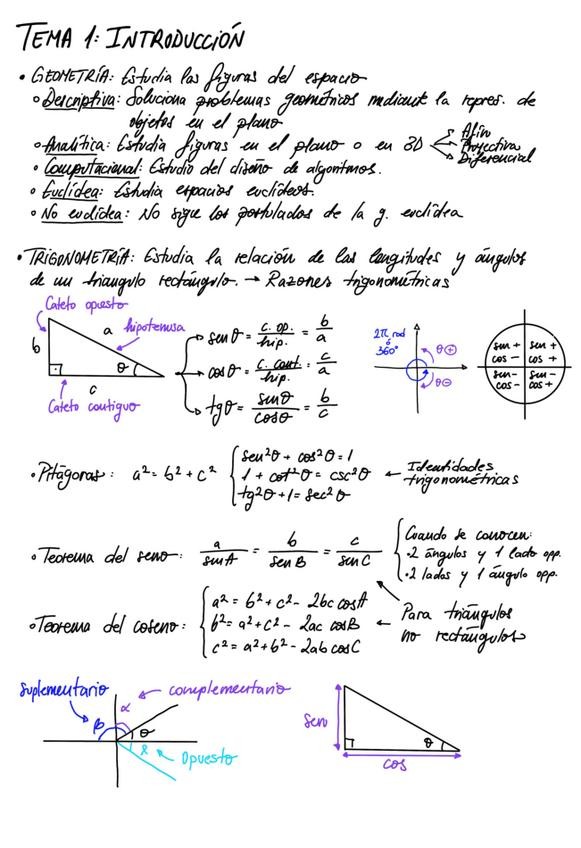 TEMA 1: INTRODUCCIÓN
• GEOMETRÍA: Estudia las figuras del espacio
◦ Descriptiva: Soluciona problemas geométricos mediante la repres. de
objetos en el plano
◦ Analítica: Estudia figuras en el plano o en 3D
Afín
Proyectiva
Diferencial
◦ Computacional: Estudio del diseño de algoritmos.
◦ Euclídea: Estudia espacios euclídeos.
◦ No euclídea: No sigue los postulados de la g. euclídea
• TRIGONOMETRÍA: Estudia la relación de las longitudes y ángulos
de un triangulo rectángulo. → Razones trigonométricas
Cateto opuesto
a hipotenusa
b
θ
c
Cateto contiguo
sen θ = c. op. / hip. = b / a
cos θ = c. cont. / hip. = c / a
tg θ = sin θ / cos θ = b / c
2π rad
ó
360°
θ ⊕
θ ⊖
sen + sen +
cos - cos +
sen - sen -
cos - cos +
• Pitágoras: a² = b² + c²
sen²θ + cos²θ = 1
1 + cot²θ = csc²θ
tg²θ + 1 = sec²θ
← Identidades
trigonométricas
◦ Teorema del seno: a / sin A = b / sen B = c / sin C
Cuando se conocen:
• 2 ángulos y 1 lado opp.
• 2 lados y 1 ángulo opp.
◦ Teorema del coseno:
a² = b² + c² - 2bc cos A
b² = a² + c² - 2ac cos B
c² = a² + b² - 2ab cos C
← Para triángulos
no rectángulos
suplementario
complementario
α
β
θ
Opuesto
sen
θ
cos